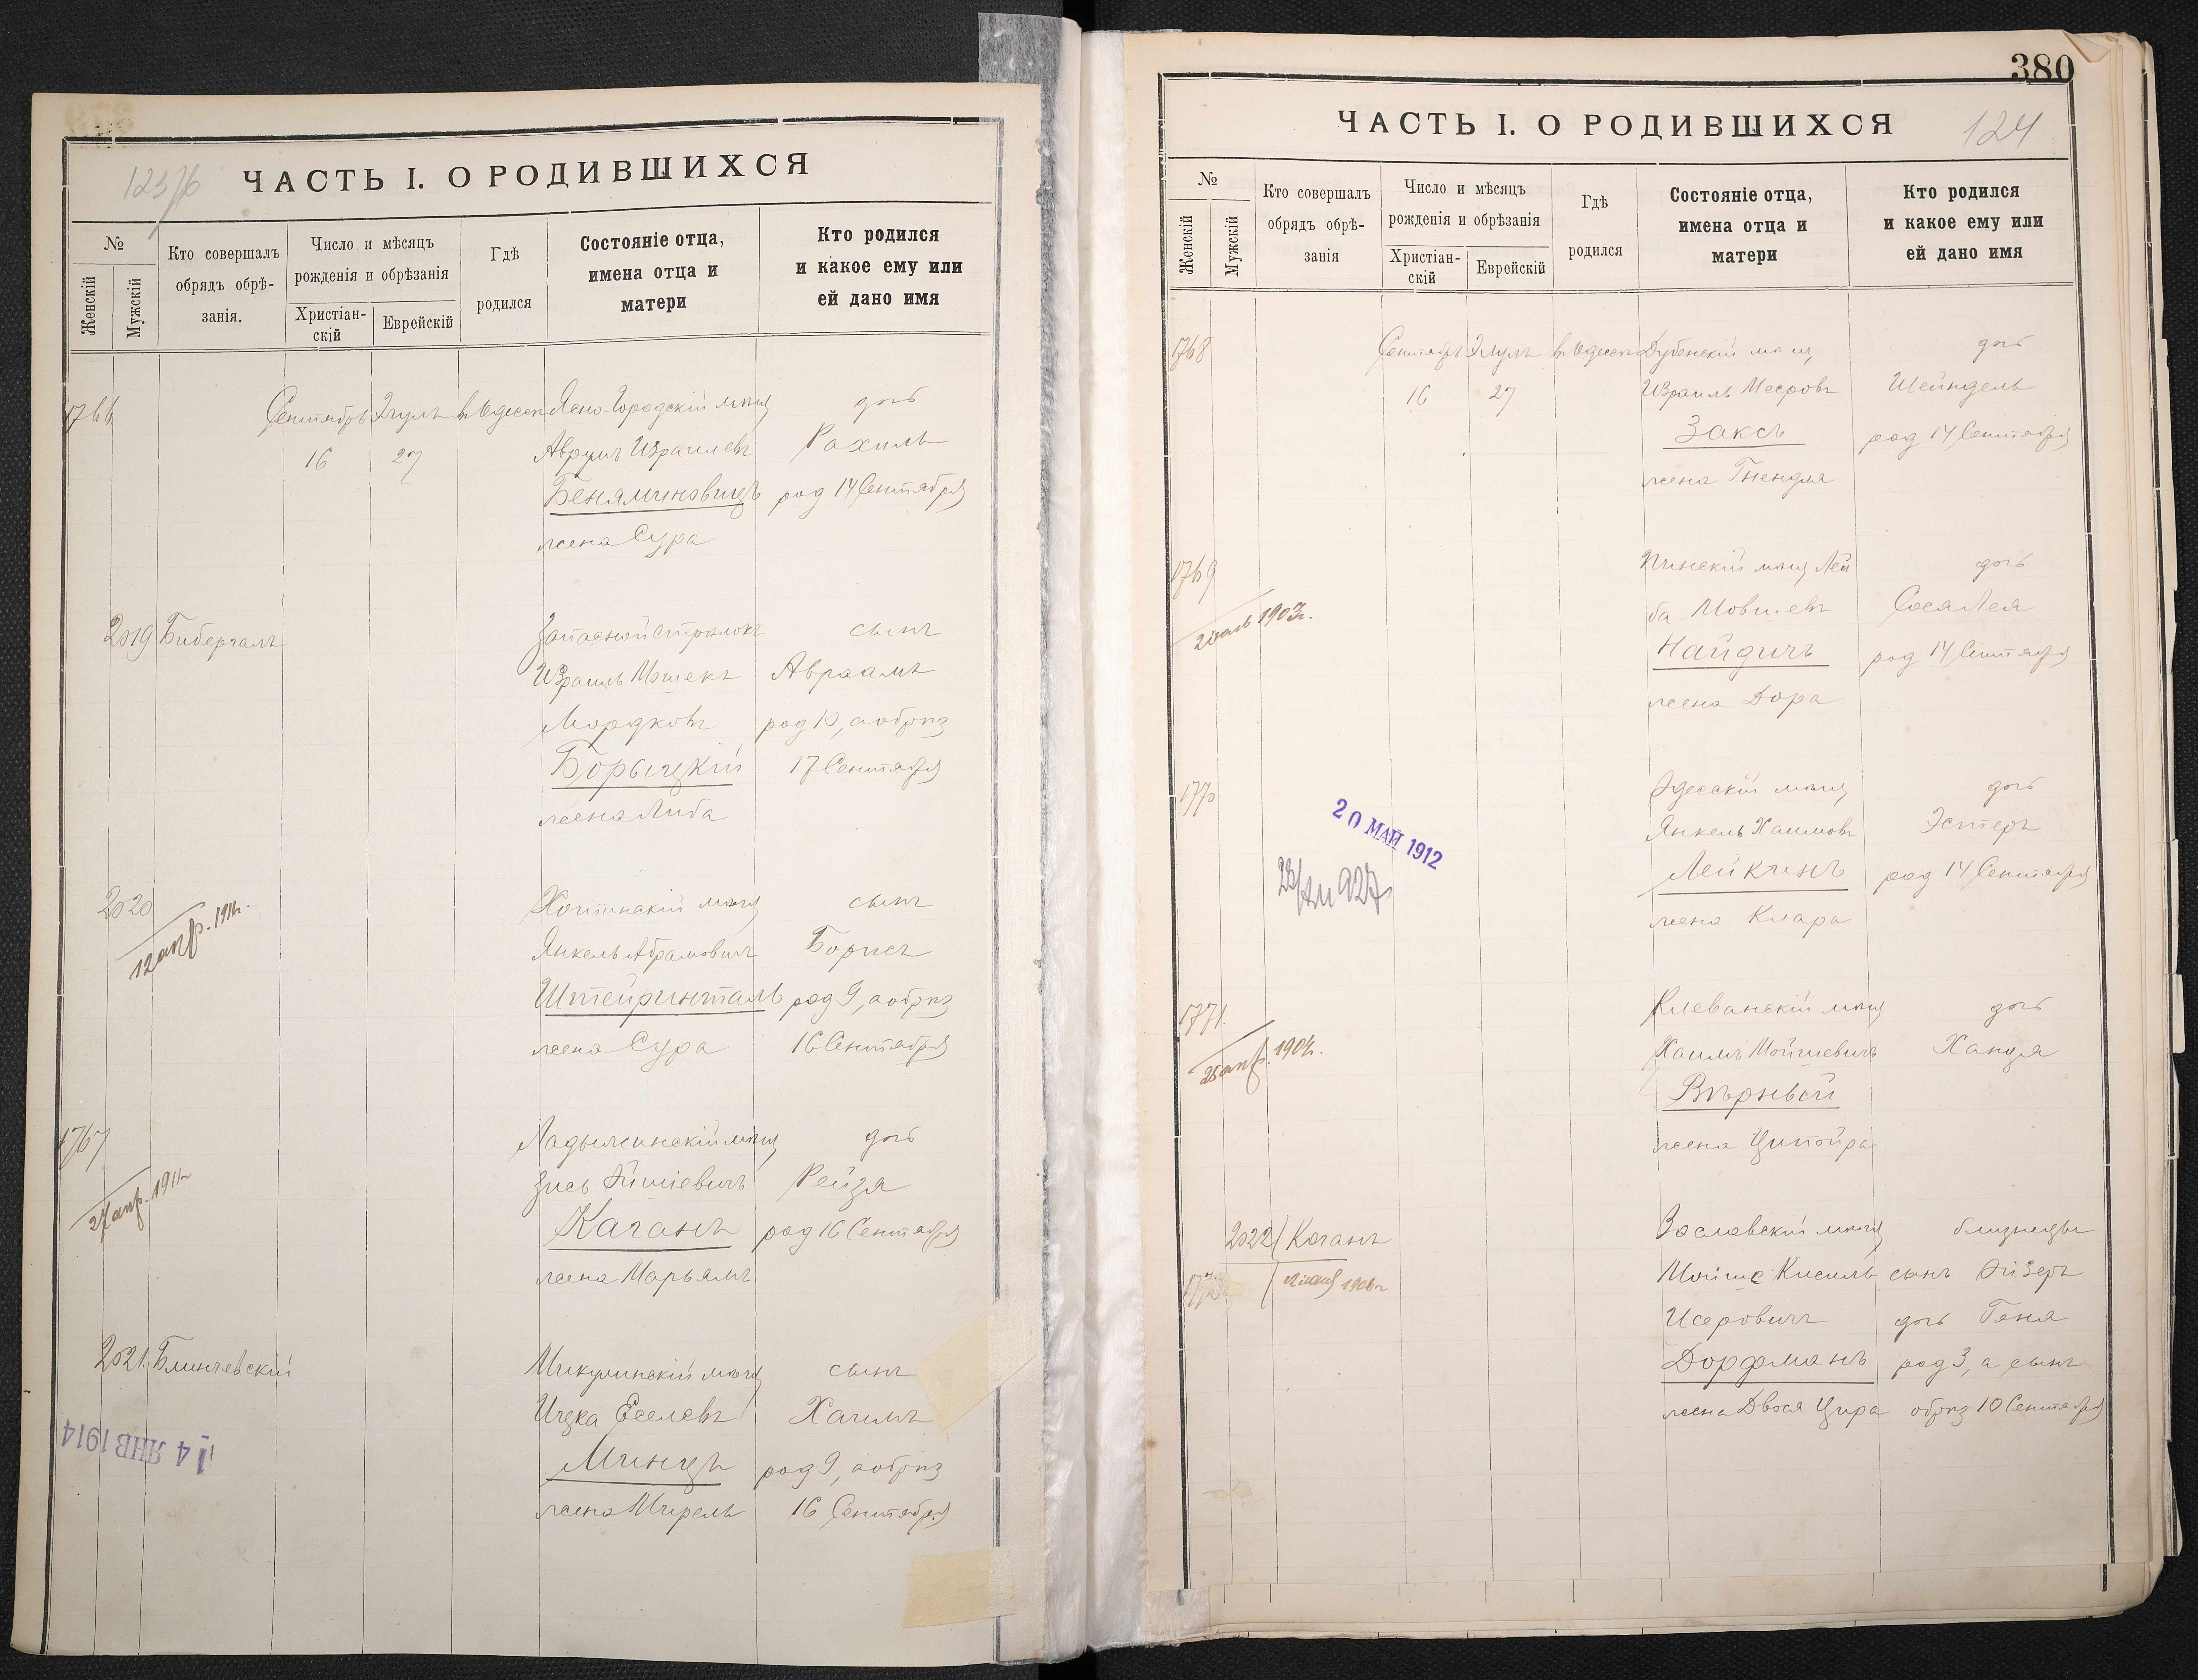 123/об
ЧАСТЬ I. О РОДИВШИХСЯ
№
Женскій
Мужскій
Кто совершалъ
обрядъ обрѣ-
занія.
Число и мѣсяцъ
рожденія и обрѣзанія
Христіан-
скій
Еврейскій
Гдѣ
родился
Состояніе отца,
имена отца и
матери
Кто родился
и какое ему или
ей дано имя
1766 Сентябрь Элулъ въ Одессѣ Ясно-Городскій мѣщ дочь
16 27 Аврумъ Израилевъ Рахиль
Беняминовицъ род 14 Сентября
жена Сура
2019 Бибергалъ Запасной стрѣлокъ сынъ
Израиль Мошекъ Авраамъ
Мордковъ род 10, а обрѣз
Борыцкій 17 Сентября
жена Либа
2020 Хотинскій мѣщ сынъ
12 апр. 1911г. Янкель Абрамовичъ Борисъ
Штейринталь род 9, а обрѣз
жена Сура 16 Сентября
1767 Ладыжинскій мѣщ дочь
27 апр. 1911г Зись Рейзя
Каганъ род 16 Сентября
жена Марьямъ
2021 Блинчевскій Микулинскій мѣщ сынъ
Ицка Еселевъ Хаимъ
14 ЯНВ 1914
Минцъ род 9, а обрѣз
жена Мирель 16 Сентября
380
ЧАСТЬ I. О РОДИВШИХСЯ
124
№
Женскій
Мужскій
Кто совершалъ
обрядъ обрѣ-
занія
Число и мѣсяцъ
рожденія и обрѣзанія
Христіан-
скій
Еврейскій
Гдѣ
родился
Состояніе отца,
имена отца и
матери
Кто родился
и какое ему или
ей дано имя
1768 Сентябрь Элулъ въ Одессѣ Дубенскій мѣщ дочь
16 27 Израиль Мееровъ Шейндель
Заксъ род 14 Сентября
жена Гнендля
1769 Пинскій мѣщ Лей дочь
1903г. ба Мовшевъ Сося Лея
Найдичъ род 14 Сентября
жена Дора
1770 Одесскій мѣщ дочь
20 МАЙ 1912
Янкель Хаимовъ Эстеръ
Лейкинъ род 14 Сентября
жена Клара
1771 Клеванскій мѣщ дочь
апр. 1904г. Хаимъ Мойшевичъ Ханця
жена Ципойра
2022 Коганъ Заславскій мѣщ близнецы
1772 1906г Мойше Кисиль сынъ Эйзеръ
Исеровичъ дочь Геня
Дорфманъ род 3, а сынъ
жена Двося Цира обрѣз 10 Сентября